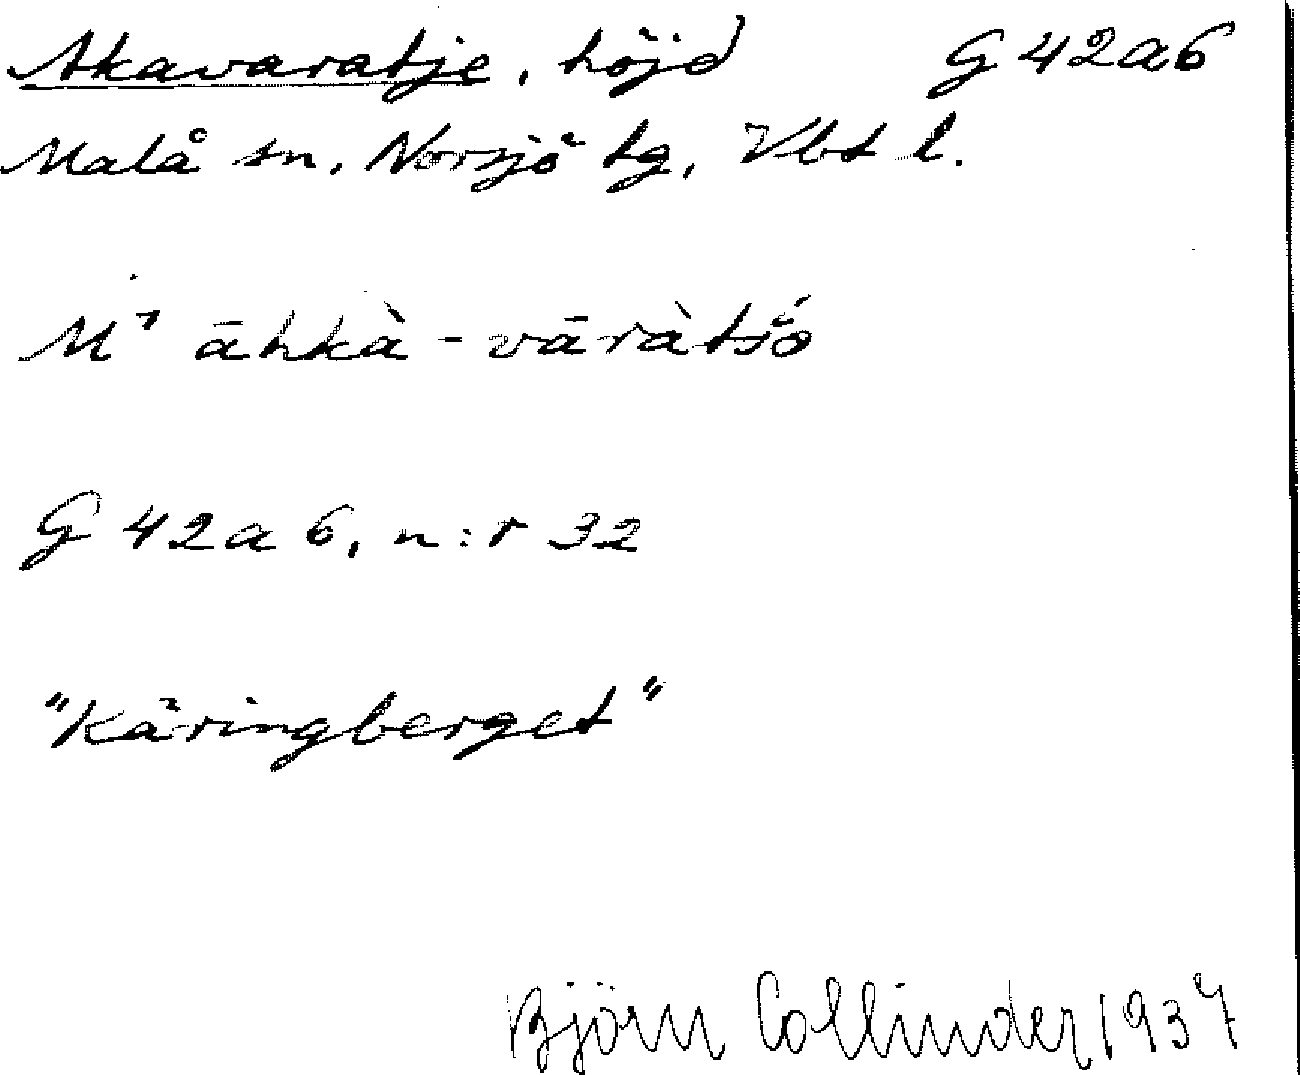 Akavaratje, höjd G 42a6
Malå sn, Norsjö tg, Vbt l.
M¹ āhkà-vāràtšó
G 42a 6, n:r 32
"Käringberget"
Björn Collinder 1937